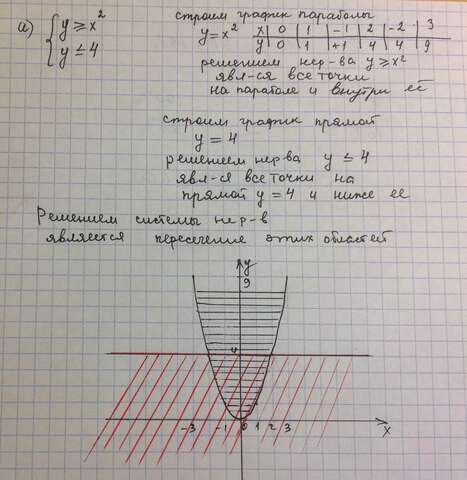 а) { y ≥ x²
y ≤ 4
строим график параболы
y = x²
x | 0 | 1 | -1 | 2 | -2 | 3
y | 0 | 1 | +1 | 4 | 4 | 9
решением нер-ва y ≥ x²
явл-ся все точки
на параболе и внутри её
строим график прямой
y = 4
решением нер-ва y ≤ 4
явл-ся все точки на
прямой y = 4 и ниже ее
Решением системы нер-в
является пересечение этих областей
y
9
4
-3 -1 0 1 2 3
x